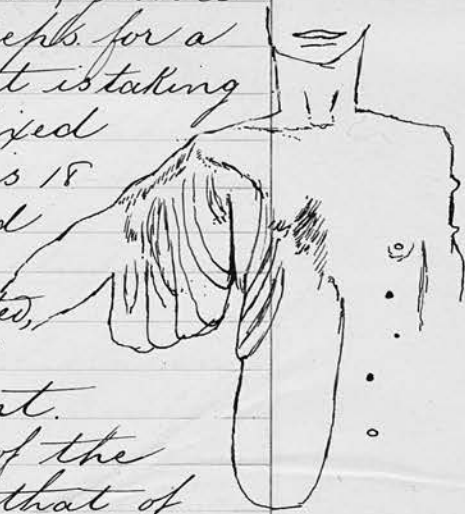 eps. for a
t is taking
ixed
s 18
d
ted,
nt.
of the
that of